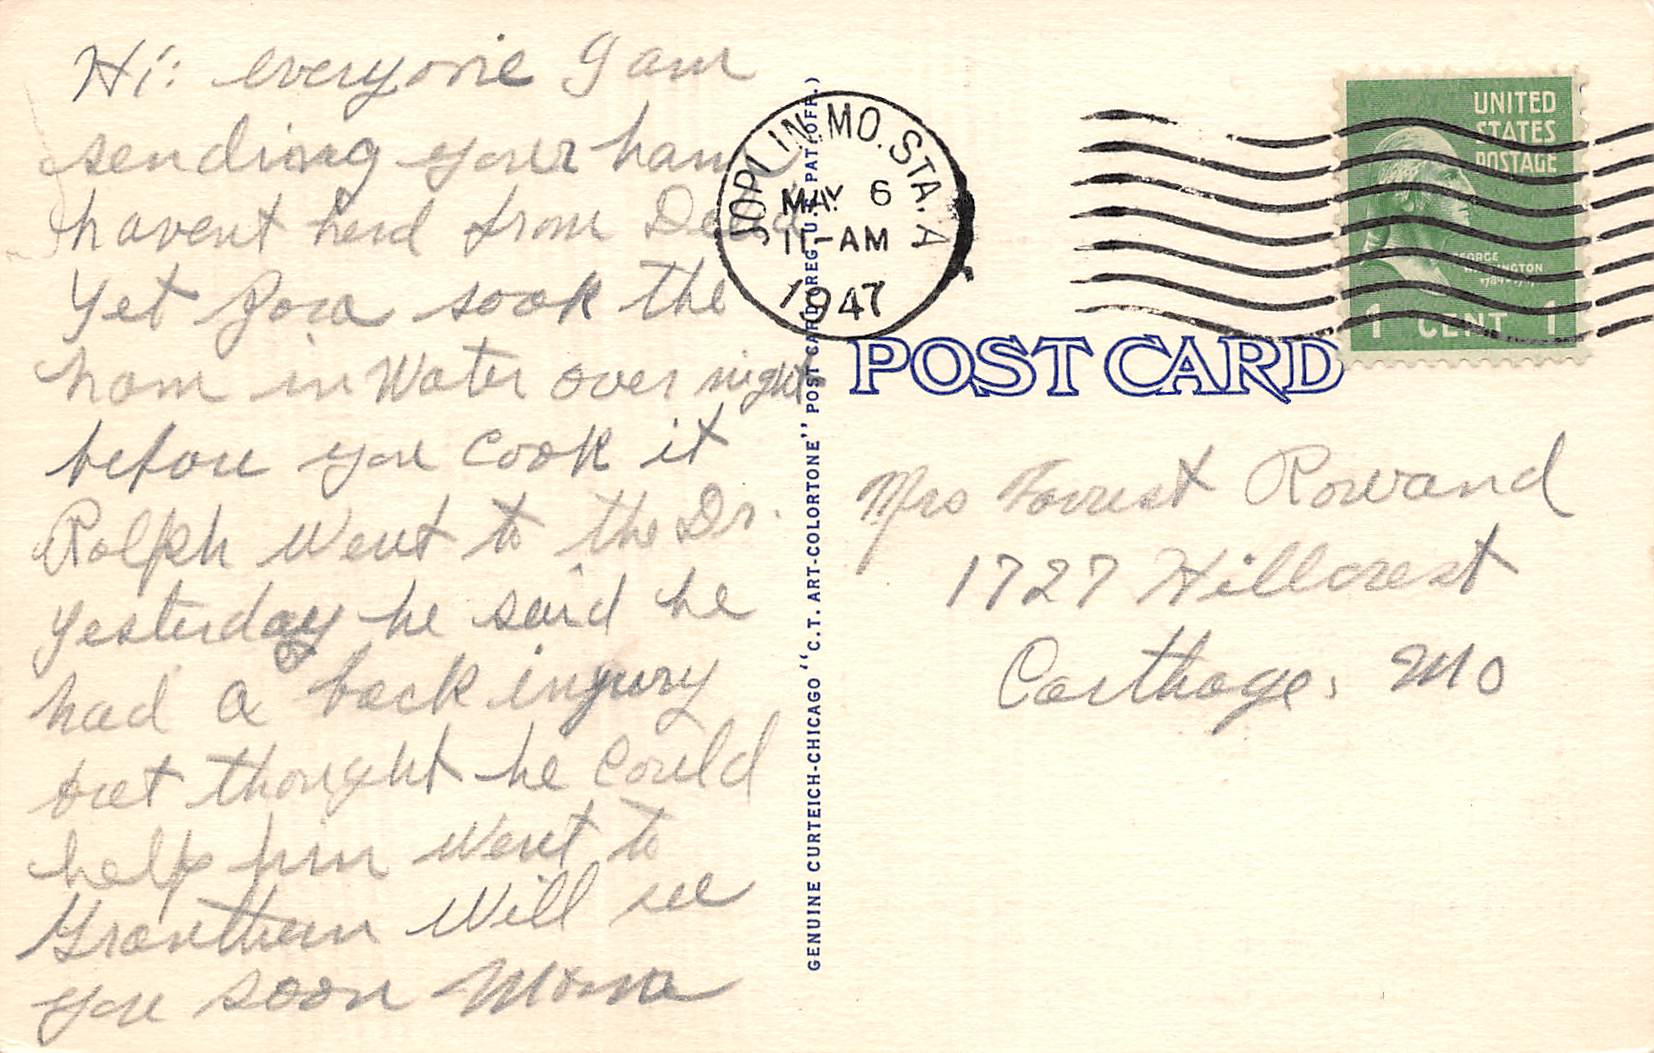 Hi: everyone I am
sending your ham
havent herd from Dead
Yet you soak the
ham in Water over night
before you cook it
Ralph Went to the Dr.
Yesterday he said he
had a back injury
but thought he could
help him Went to
Granthem Will see
you soon Moma
GENUINE CURTEICH-CHICAGO "C.T. ART-COLORTONE" POST CARD (REG. U.S. PAT. OFF.)
JOPLIN, MO. STA. A
MAY 6
11-AM
1947
UNITED
STATES
POSTAGE
GEORGE
WASHINGTON
1 CENT 1
POST CARD
Mrs Forrest Rowand
1727 Hillcrest
Carthage, Mo